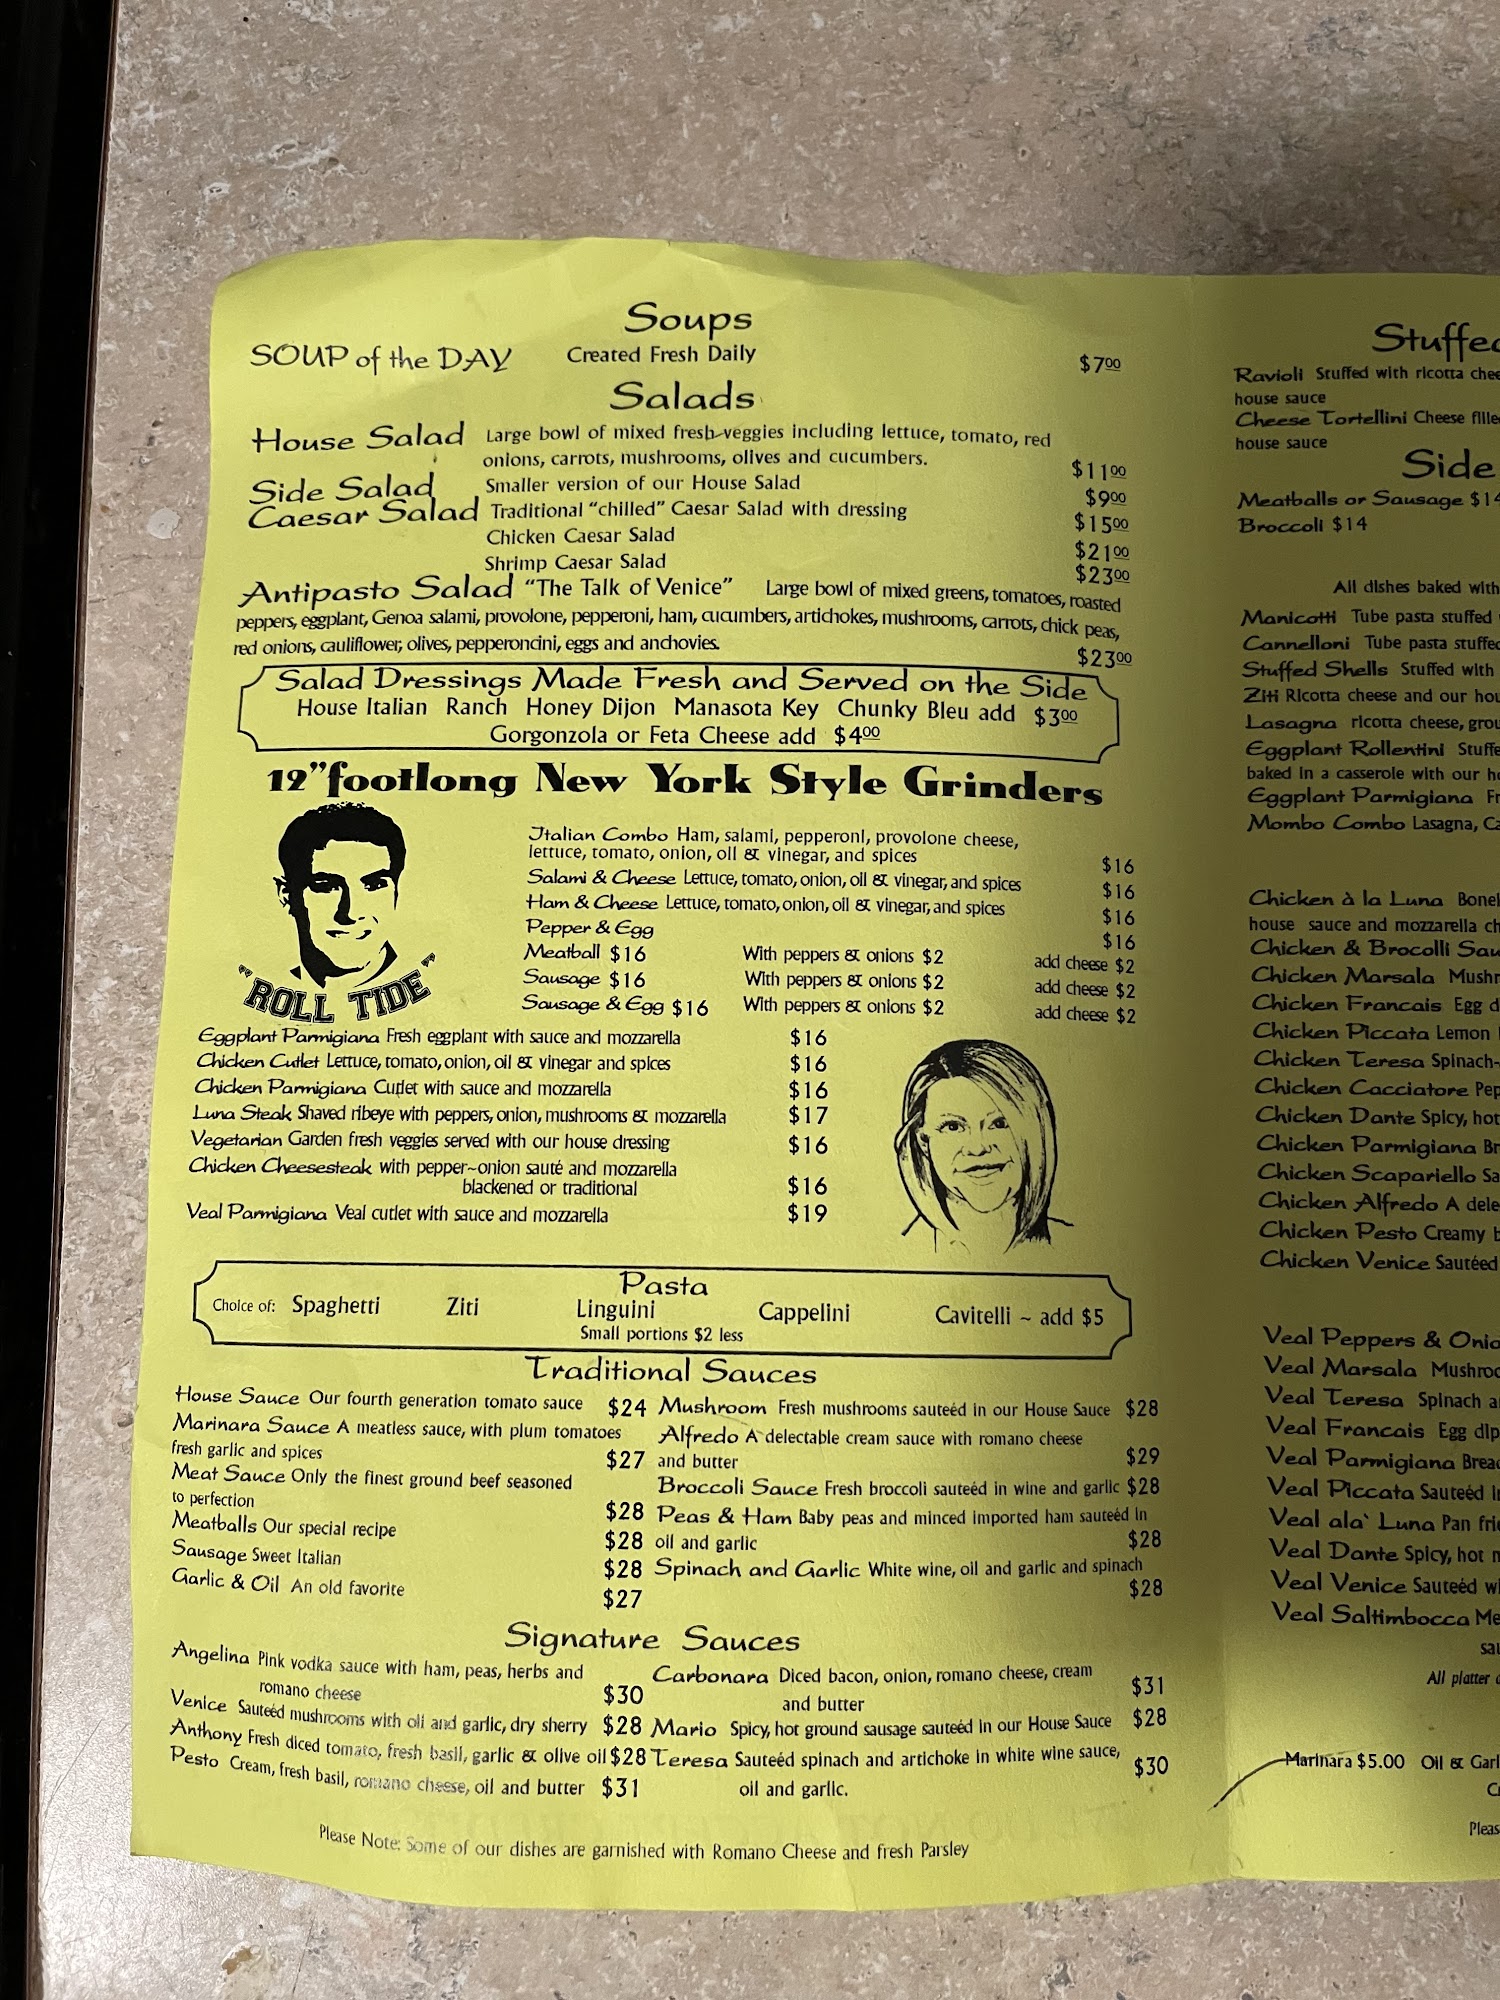 Soups
SOUP of the DAY Created Fresh Daily $700
Salads
House Salad Large bowl of mixed fresh veggies including lettuce, tomato, red
onions, carrots, mushrooms, olives and cucumbers. $1100
Side Salad Smaller version of our House Salad $900
Caesar Salad Traditional “chilled” Caesar Salad with dressing $1500
Chicken Caesar Salad $2100
Shrimp Caesar Salad $2300
Antipasto Salad “The Talk of Venice” Large bowl of mixed greens, tomatoes, roasted
peppers, eggplant, Genoa salami, provolone, pepperoni, ham, cucumbers, artichokes, mushrooms, carrots, chick peas,
red onions, cauliflower, olives, pepperoncini, eggs and anchovies. $2300
Salad Dressings Made Fresh and Served on the Side
House Italian Ranch Honey Dijon Manasota Key Chunky Bleu add $300
Gorgonzola or Feta Cheese add $400
12”footlong New York Style Grinders
Italian Combo Ham, salami, pepperoni, provolone cheese,
lettuce, tomato, onion, oil & vinegar, and spices $16
Salami & Cheese Lettuce, tomato, onion, oil & vinegar, and spices $16
Ham & Cheese Lettuce, tomato, onion, oil & vinegar, and spices $16
Pepper & Egg $16
Meatball $16 With peppers & onions $2 add cheese $2
Sausage $16 With peppers & onions $2 add cheese $2
Sausage & Egg $16 With peppers & onions $2 add cheese $2
"ROLL TIDE"
Eggplant Parmigiana Fresh eggplant with sauce and mozzarella $16
Chicken Cutlet Lettuce, tomato, onion, oil & vinegar and spices $16
Chicken Parmigiana Cutlet with sauce and mozzarella $16
Luna Steak Shaved ribeye with peppers, onion, mushrooms & mozzarella $17
Vegetarian Garden fresh veggies served with our house dressing $16
Chicken Cheesesteak with pepper~onion sauté and mozzarella
blackened or traditional $16
Veal Parmigiana Veal cutlet with sauce and mozzarella $19
Pasta
Choice of: Spaghetti Ziti Linguini Cappelini Cavitelli ~ add $5
Small portions $2 less
Traditional Sauces
House Sauce Our fourth generation tomato sauce $24
Marinara Sauce A meatless sauce, with plum tomatoes
fresh garlic and spices $27
Meat Sauce Only the finest ground beef seasoned
to perfection $28
Meatballs Our special recipe $28
Sausage Sweet Italian $28
Garlic & Oil An old favorite $27
Mushroom Fresh mushrooms sauteéd in our House Sauce $28
Alfredo A delectable cream sauce with romano cheese
and butter $29
Broccoli Sauce Fresh broccoli sauteéd in wine and garlic $28
Peas & Ham Baby peas and minced imported ham sauteéd in
oil and garlic $28
Spinach and Garlic White wine, oil and garlic and spinach
$28
Signature Sauces
Angelina Pink vodka sauce with ham, peas, herbs and
romano cheese $30
Venice Sauteéd mushrooms with oil and garlic, dry sherry $28
Anthony Fresh diced tomato, fresh basil, garlic & olive oil $28
Pesto Cream, fresh basil, romano cheese, oil and butter $31
Carbonara Diced bacon, onion, romano cheese, cream
and butter $31
Mario Spicy, hot ground sausage sauteéd in our House Sauce $28
Teresa Sauteéd spinach and artichoke in white wine sauce,
oil and garlic. $30
Please Note: Some of our dishes are garnished with Romano Cheese and fresh Parsley
Stuffed
Ravioli Stuffed with ricotta chee
house sauce
Cheese Tortellini Cheese fille
house sauce
Side
Meatballs or Sausage $14
Broccoli $14
All dishes baked with
Manicotti Tube pasta stuffed
Cannelloni Tube pasta stuffed
Stuffed Shells Stuffed with
Ziti Ricotta cheese and our hou
Lasagna ricotta cheese, grou
Eggplant Rollentini Stuffe
baked in a casserole with our ho
Eggplant Parmigiana Fr
Mombo Combo Lasagna, Ca
Chicken à la Luna Bonel
house sauce and mozzarella ch
Chicken & Brocolli Sau
Chicken Marsala Mushr
Chicken Francais Egg d
Chicken Piccata Lemon
Chicken Teresa Spinach-
Chicken Cacciatore Pep
Chicken Dante Spicy, hot
Chicken Parmigiana Br
Chicken Scapariello Sa
Chicken Alfredo A dele
Chicken Pesto Creamy b
Chicken Venice Sautéed
Veal Peppers & Onio
Veal Marsala Mushroo
Veal Teresa Spinach a
Veal Francais Egg dip
Veal Parmigiana Bread
Veal Piccata Sauteéd in
Veal ala` Luna Pan frie
Veal Dante Spicy, hot
Veal Venice Sauteéd wi
Veal Saltimbocca Me
sau
All platter
Marinara $5.00 Oil & Garl
Pleas